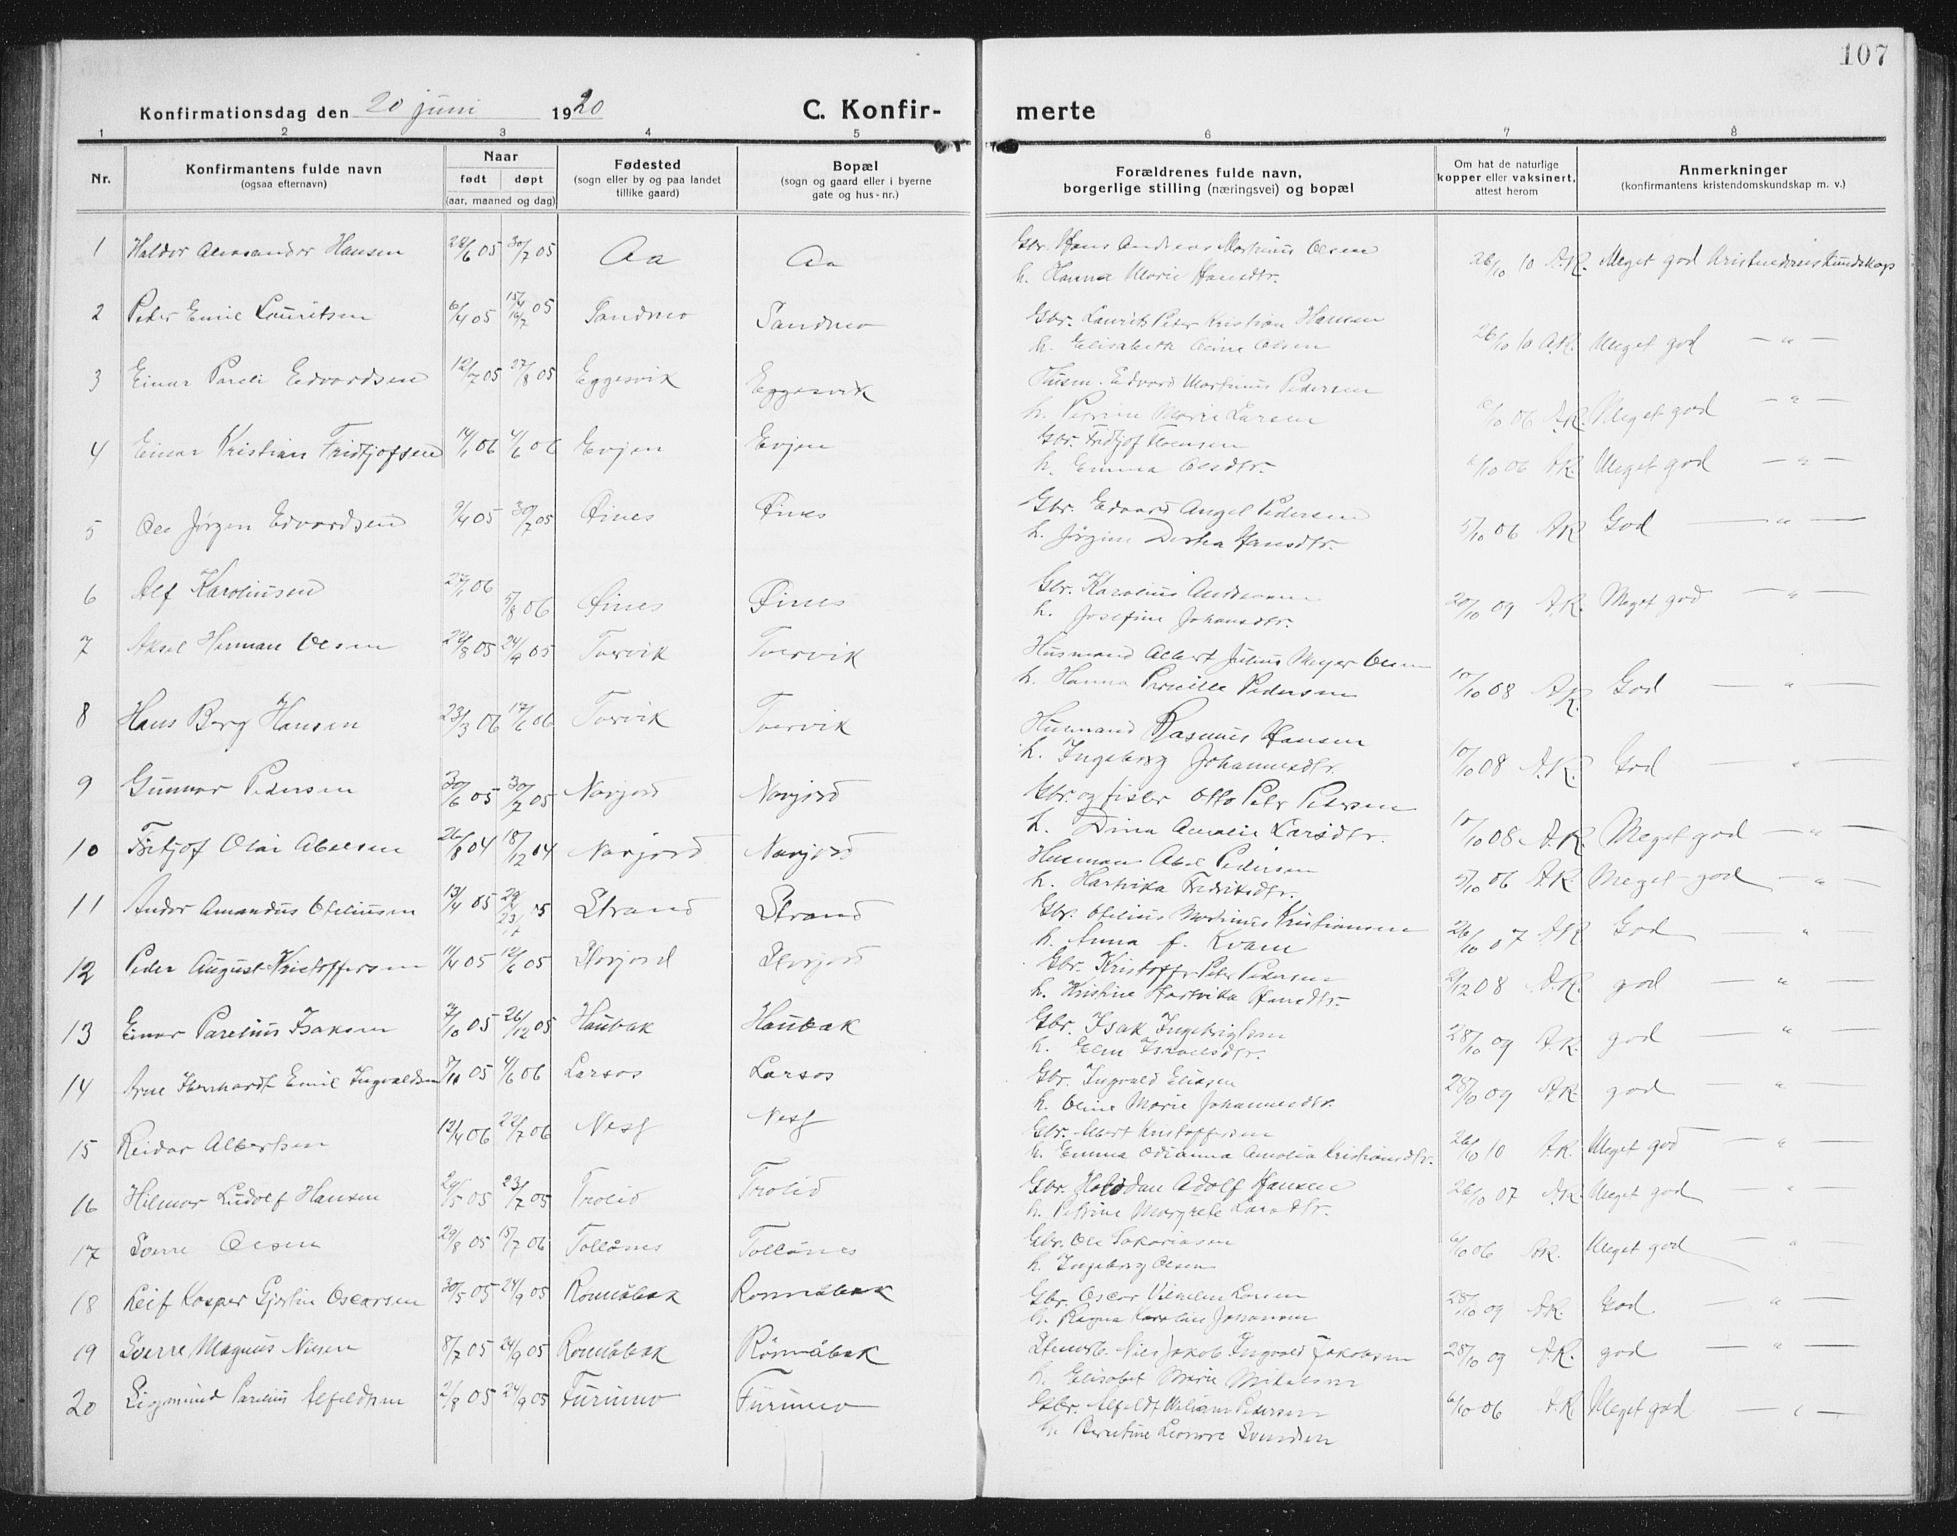 107
Konfirmationsdag den 20 juni 1920
C. Konfir- merte
1 2 3 4 5 6 7 8
Nr. Konfirmantens fulde navn (ogsaa efternavn) Naar født døpt (aar, maaned og dag) Fødested (sogn eller by og paa landet tillike gaard) Bopæl (sogn og gaard eller i byerne gate og hus-nr.) Forældrenes fulde navn, borgerlige stilling (næringsvei) og bopæl Om hat de naturlige kopper eller vaksinert, attest herom Anmerkninger (konfirmantens kristendomskundskap m. v.)
1 Haldor Hansen 28/6 05 30/7 05 Aa Aa Gbr. Hans Andreas Martinus Olsen
h. Hanna Marie Hansdtr. 26/10 10 A.K. Meget god Kristendomskundskap
2 Peder Emil Lauritsen 6/4 05 05 Sandmo Sandmo Gbr. Laurits Peter Kristian Hansen
h. Elisabeth Oline Olsen 26/10 10 A.K. Meget god — " —
3 Einar Pareli Edvardsen 12/7 05 27/8 05 Eggesvik Eggesvik Husm. Edvard Martinus Pedersen
h. Petrine Marie Larsen 6/10 06 A.K. Meget god — " —
4 Einar Kristian Fridtjofsen 14/1 06 4/6 06 Evjen Evjen Gbr. Fridtjof
h. Emma Olsdtr. 6/10 06 A.K. Meget god — " —
5 Ole Jörgen Edvardsen 9/4 05 30/7 05 Øines Øines Gbr. Edvard Angel Pedersen
h. Jörgine Hansdtr. 5/10 06 A.K. God — " —
6 Alf Karoliusen 27/1 06 5/8 06 Øines Øines Gbr. Karolius Andersen
h. Josefine Johansdtr. 20/10 09 A.K. Meget god — " —
7 Aksel Herman Olsen 29/8 05 24/9 05 Tvervik Tvervik Husmand Albert Julius Meyer Olsen
h. Hanna Pernille Pedersen 10/10 08 A.K. God — " —
8 Hans Berg Hansen 23/3 06 17/6 06 Torvik Tvervik Husmand Rasmus Hansen
h. Ingeborg Johannesdtr. 10/10 08 A.K. God — " —
9 Gunnar Pedersen 30/6 05 30/7 05 Norjord Norjord Gbr. og fisker Otto Peter Petersen
h. Dina Amalie Larsdtr. 10/10 08 A.K. Meget god — " —
10 Fritjof Olai Abelsen 26/8 04 18/12 04 Norjord Norjord Husman Abel Pedersen
h. Hartvika Fredriksdtr. 5/10 06 A.K. Meget god — " —
11 Andor Amandus Oteliusen 13/4 05 05 Strand Strand Gbr. Otelius Martinus Kristiansen
h. Anna f. Kvam 26/10 07 A.K. God — " —
12 Peder August Kristoffersen 11/4 05 12/6 05 Storjord Storjord Gbr. Kristoffer Peter Pedersen
h. Kristine Hartvika Hansdtr. 2/12 08 A.K. god — " —
13 Einar Parelius Isaksen 7/10 05 26/12 05 Haubak Haubak Gbr. Isak Ingebrigtsen
h. Elen Israelsdtr. 28/10 09 A.K. god — " —
14 Arne Bernhardt Emil Ingvaldsen 8/11 05 4/6 06 Larsos Larsos Gbr. Ingvald Eliasen
h. Oline Marie Johannesdtr. 28/10 09 A.K. god — " —
15 Reidar Albertsen 12/4 06 22/7 06 Nesf Nesf Gbr. Albert Kristoffersen
h. Emma Odianna Amalia Kristiansdtr. 26/10 10 A.K. Meget god — " —
16 Hilmar Ludolf Hansen 29/5 05 23/7 05 Trolid Trolid Gbr. Halvdan Adolf Hansen
h. Petrine Margrete Larsdtr. 26/10 07 A.K. Meget god — " —
17 Sverre Olsen 29/8 05 15/7 06 Tollånes Tollånes Gbr. Ole Sakariasen
h. Ingeborg Olsen 6/10 06 A.K. Meget god — " —
18 Leif Kasper Gjertin Oscarsen 30/5 05 24/9 05 Romåbak Romåbak Gbr. Oscar Vilhelm Larsen
h. Ragna Karoline Johansen 28/10 09 A.K. God — " —
19 Sverre Magnus Nilsen 8/7 05 24/9 05 Romåbak Römåbak Nils Jakob Ingvald Jakobsen
h. Elisabet Marie Mikalsen 28/10 09 A.K. god — " —
20 Sigmund Parelius Alfeldsen 2/8 05 24/9 05 Furumo Furumo Gbr. Alfeldt Wiliam Pedersen
h. Berntine Leonore Svendsen 6/10 06 A.K. Meget god — " —